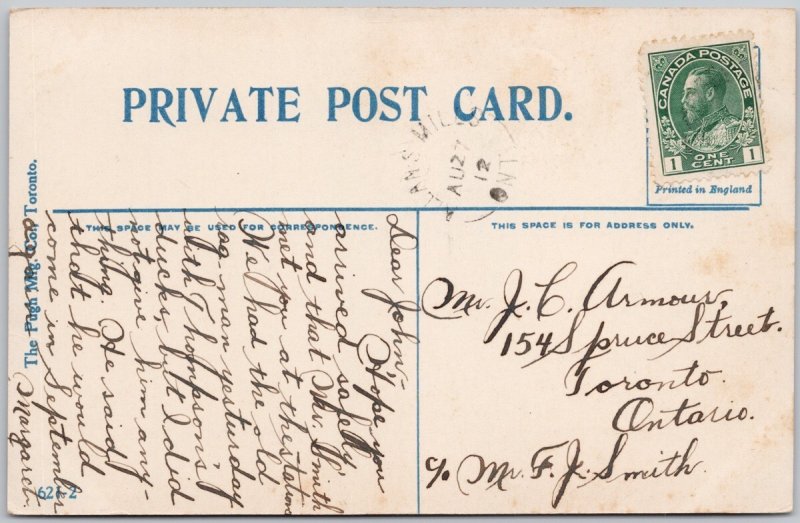 PRIVATE POST CARD.
MILLS
AU 27
12
ONT
CANADA POSTAGE
1 ONE CENT 1
Printed in England
THIS SPACE MAY BE USED FOR CORRESPONDENCE.
THIS SPACE IS FOR ADDRESS ONLY.
Dear John-
Hope you
arrived safely
and that Mr. Smith
met you at the station
We had the old
rag man yesterday
with Thompson's
ducks but I did
not give him any-
thing. He said
that he would
come in September
Margaret.
Mr. J. C. Armour,
154 Spruce Street.
Toronto.
Ontario.
c/o Mr. F. J. Smith.
The Pugh Mfg. Co., Toronto.
621-2